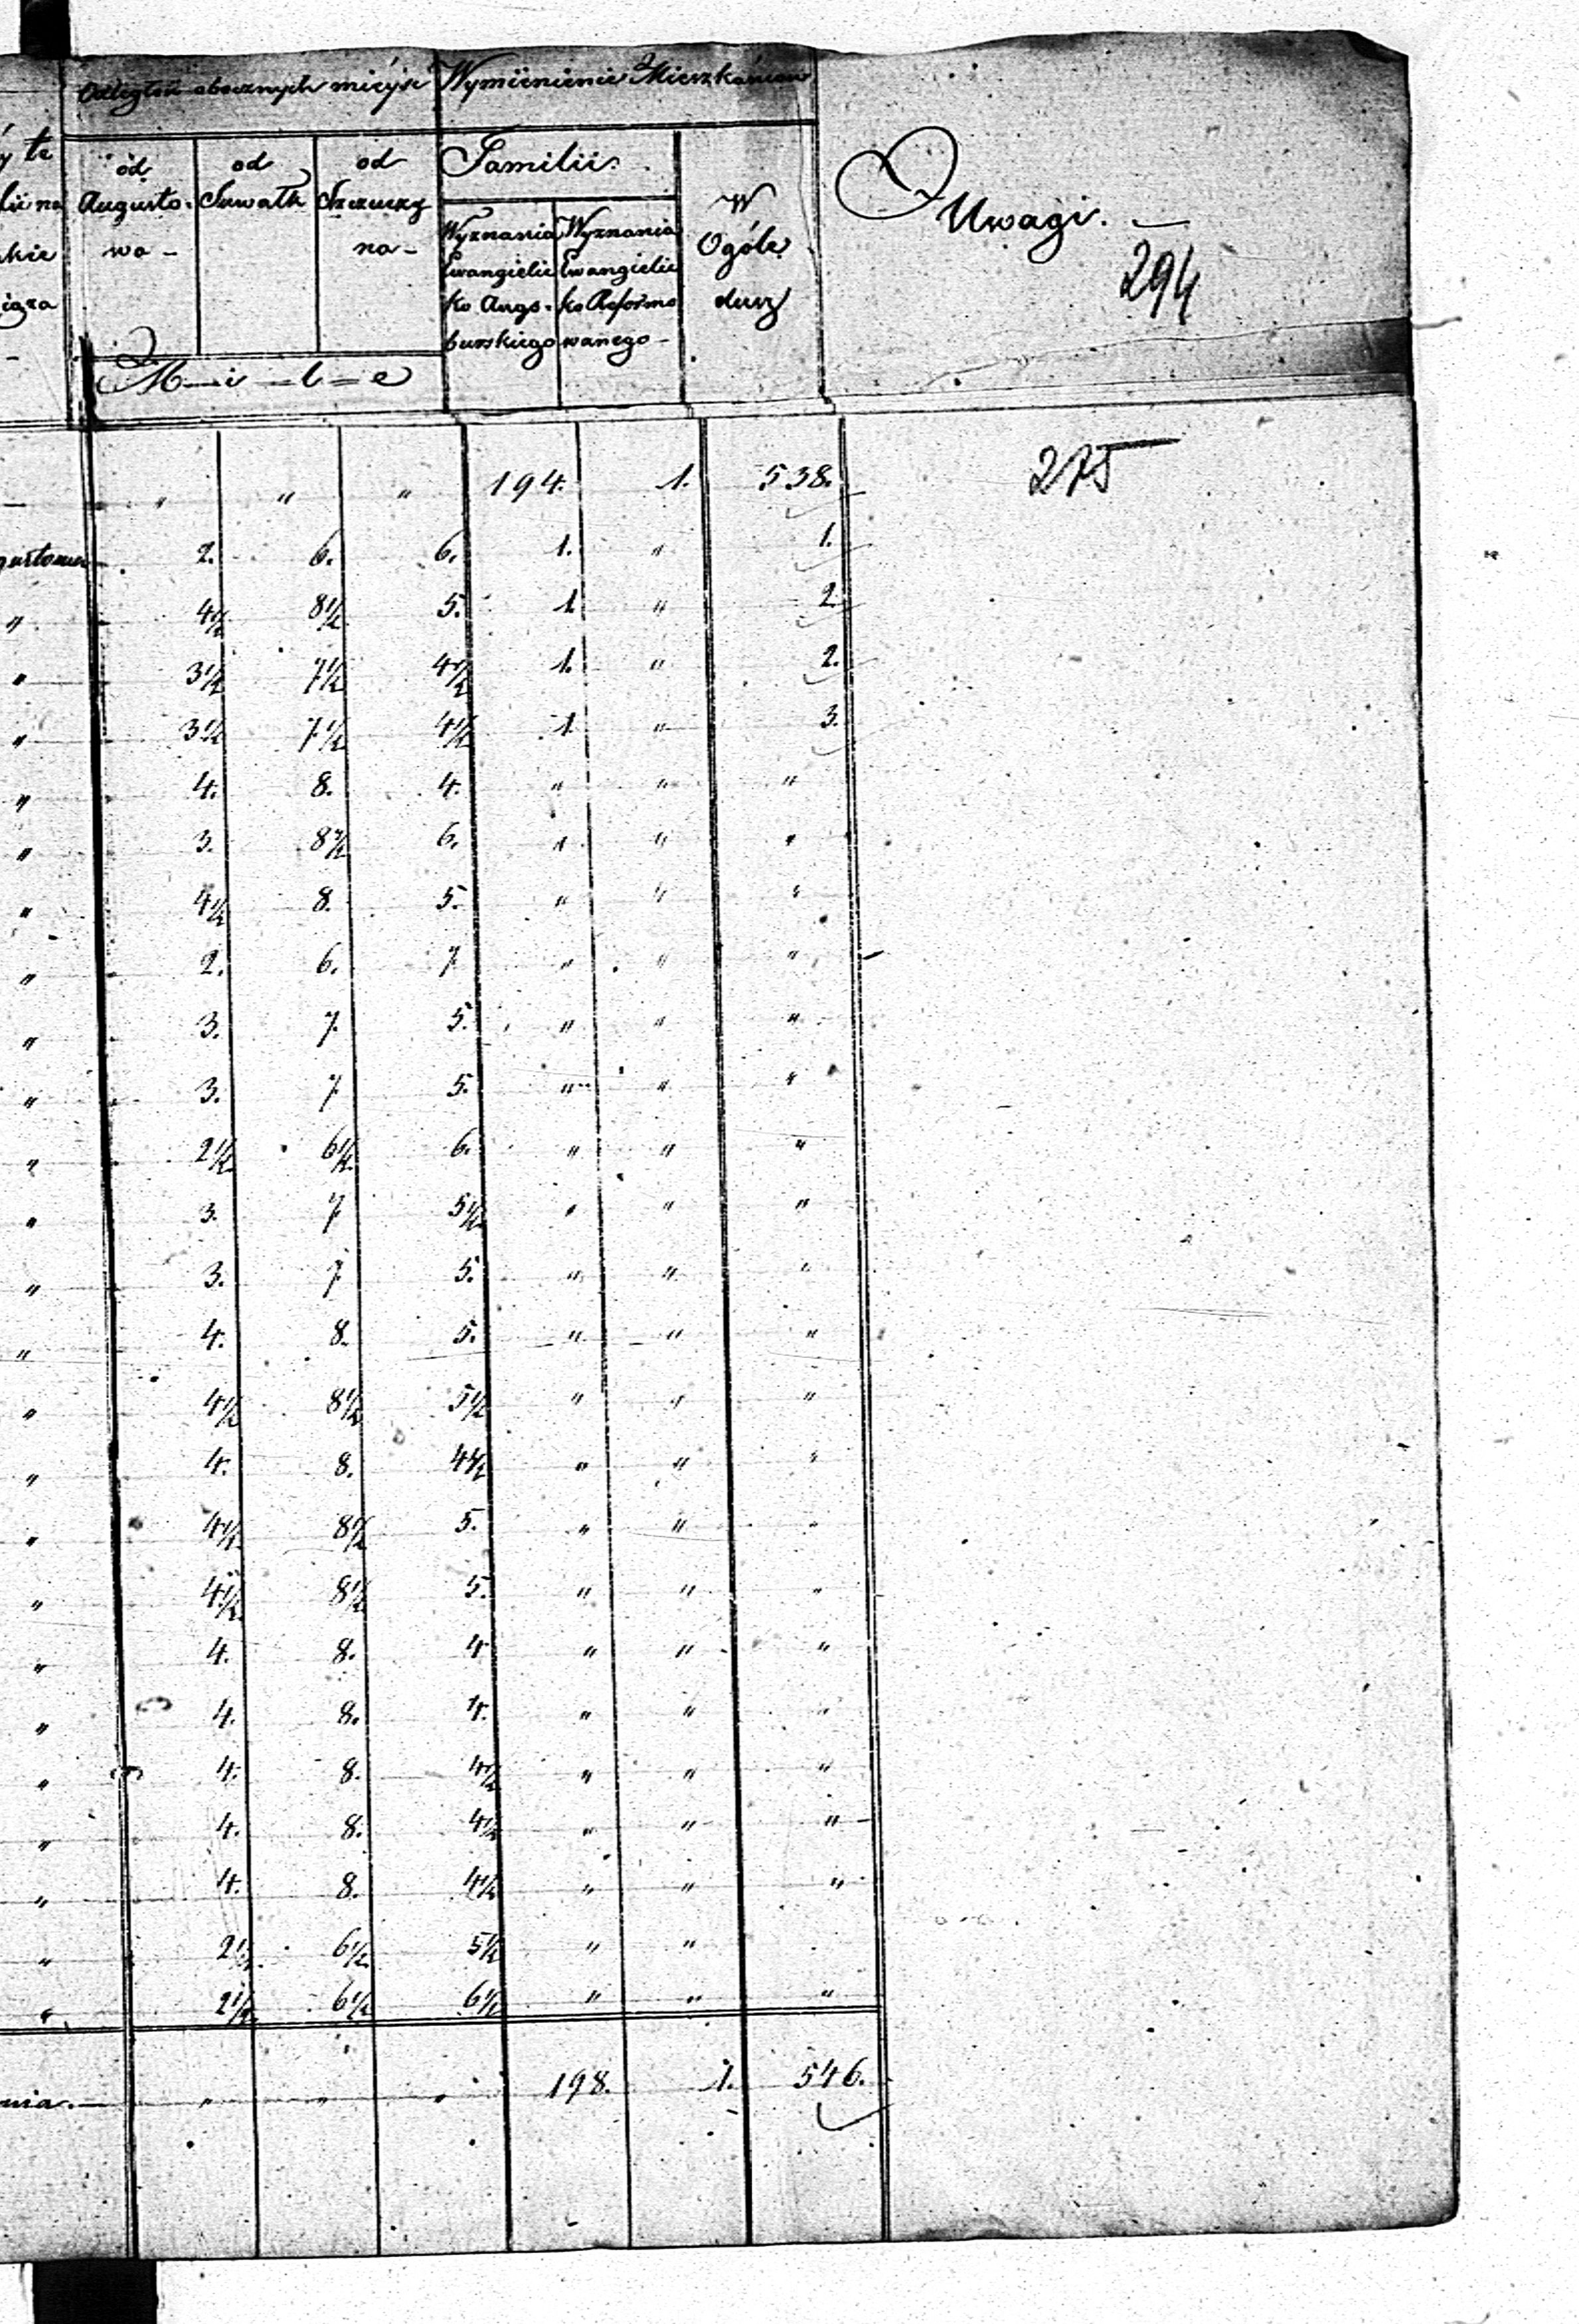 Odległość obocznych miéysc Wymienienie Mieszkańców
od Augusto-wa - od Suwałk od Szczuczy na -
M - i - l - e
Familii.
Wyznania Ewangielic ko Augs-burskiego
Wyznania Ewangielic ko Reformo wanego -
W Ogóle dusz
Uwagi. -
294
275
" " " 194. 1. 538.
2. 6. 6. 1. " 1.
4½ 8½ 5. 1. " 2.
3½ 7½ 4½ 1. " 2.
3½ 7½ 4½ 1. " 3.
" 4. 8. 4. " " "
" 3. 8½ 6. " " "
" 4½ 8. 5. " " "
" 2. 6. 7 " " "
" 3. 7. 5. " " "
" 3. 7 5. " " "
" 2½ 6½ 6. " " "
" 3. 7 5½ " " "
" 3. 7 5. " " "
" 4. 8. 5. " " "
" 4½ 8½ 5½ " " "
" 4. 8. 4½ " " "
" 4½ 8½ 5. " " "
" 4½ 8½ 5. " " "
" 4. 8. 4 " " "
" 4. 8. 4. " " "
" 4. 8. 4½ " " "
" 4. 8. 4½ " " "
" 4. 8. 4½ " " "
" 2½ 6½ 5½ " "
" 2½ 6½ 6½ " " "
nia. - " " " 198. 1. 546.